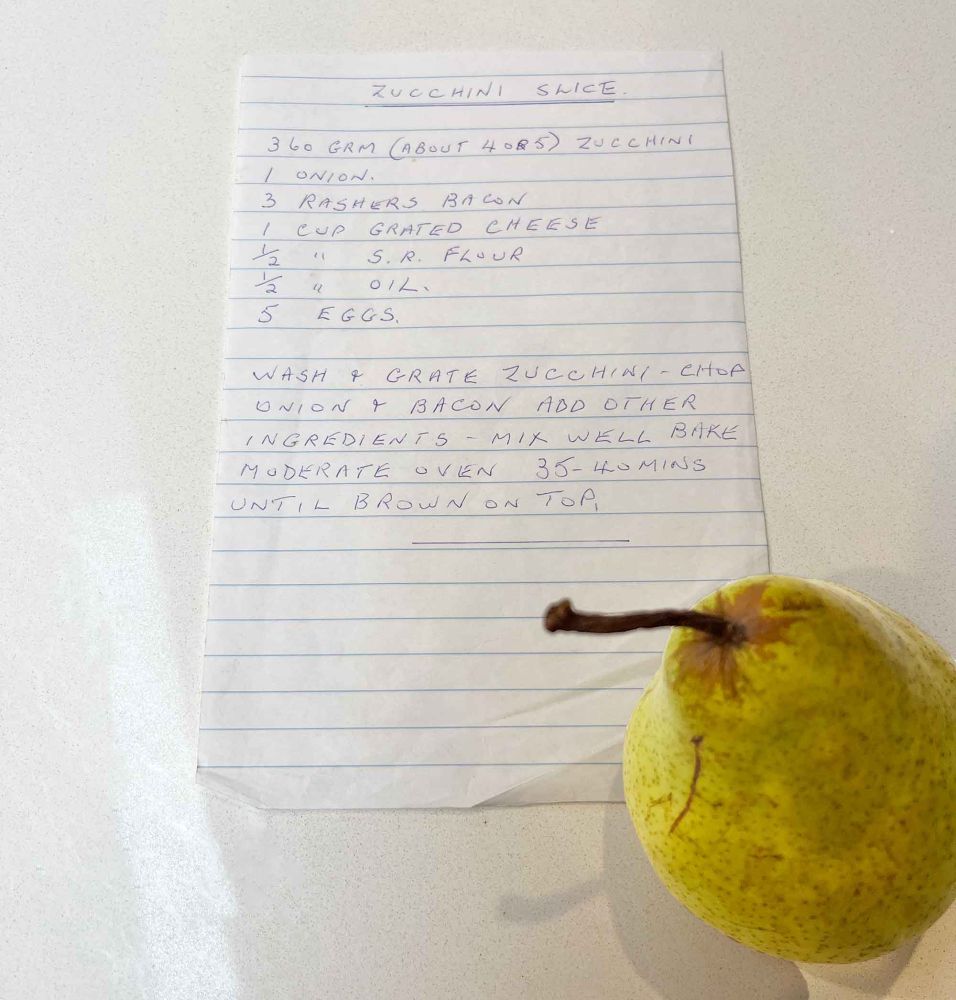 ZUCCHINI SLICE.
360 GRM (ABOUT 4 OR 5) ZUCCHINI
1 ONION.
3 RASHERS BACON
1 CUP GRATED CHEESE
1/2 " S.R. FLOUR
1/2 " OIL.
5 EGGS.
WASH & GRATE ZUCCHINI - CHOP
ONION & BACON ADD OTHER
INGREDIENTS - MIX WELL BAKE
MODERATE OVEN 35-40 MINS
UNTIL BROWN ON TOP.